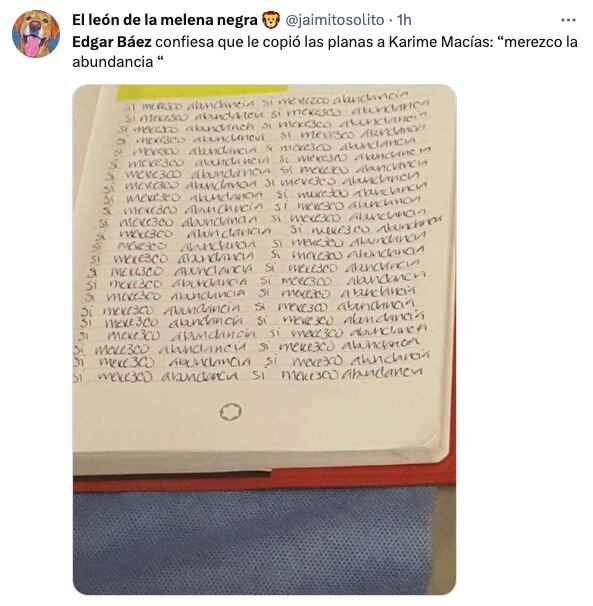 El león de la melena negra 🦁 @jaimitosolito · 1h
Edgar Báez confiesa que le copió las planas a Karime Macías: “merezco la
abundancia “
si merezco abundancia si merezco abundancia
si merezco abundancia si merezco abundancia
si merezco abundancia si merezco abundancia
si merezco abundancia si merezco abundancia
si merezco abundancia si merezco abundancia
si merezco abundancia si merezco abundancia
si merezco abundancia si merezco abundancia
si merezco abundancia si merezco abundancia
si merezco abundancia si merezco abundancia
si merezco abundancia si merezco abundancia
si merezco abundancia si merezco abundancia
si merezco abundancia si merezco abundancia
si merezco abundancia si merezco abundancia
si merezco abundancia si merezco abundancia
si merezco abundancia si merezco abundancia
si merezco abundancia si merezco abundancia
si merezco abundancia si merezco abundancia
si merezco abundancia si merezco abundancia
si merezco abundancia si merezco abundancia
si merezco abundancia si merezco abundancia
si merezco abundancia si merezco abundancia
si merezco abundancia si merezco abundancia
si merezco abundancia si merezco abundancia